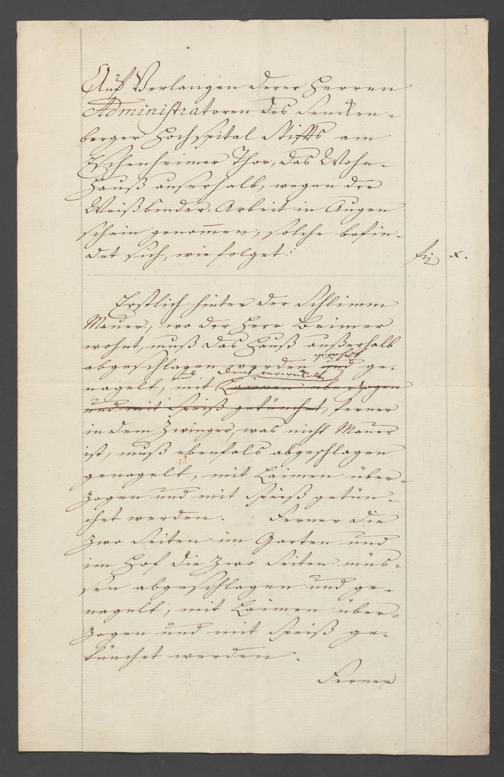 5
Auf Verlangen derer Herren
Administratoren des Sencken-
berger Hochspital Stiffts am
Eschenheimer Thor, das Wohn-
Hauß auserhalb, wegen der
Weißbinder Arbeit in Augen
schein genommen, solche befin-
det sich, wie folget:
f x.
Erstlich hinter der Schlimm
Mauer, wo der Herr Beimer
wohnt, muß das Hauß außerhalb
abgeschlagen werden und ge-
nagelt, mit Laimen überzogen
und mit Speiß getünchet, ferner
in dem Zwinger, was nicht Mauer
ist, muß ebenfals abgeschlagen
genagelt, mit Laimen über-
zogen und mit Speiß getün-
chet werden. Ferner die
zwo Seiten im Garten und
im Hof die zwo Seiten müs-
sen abgeschlagen und ge-
nagelt, mit Laimen über-
zogen und mit Speiß ge-
tünchet werden.
Ferner